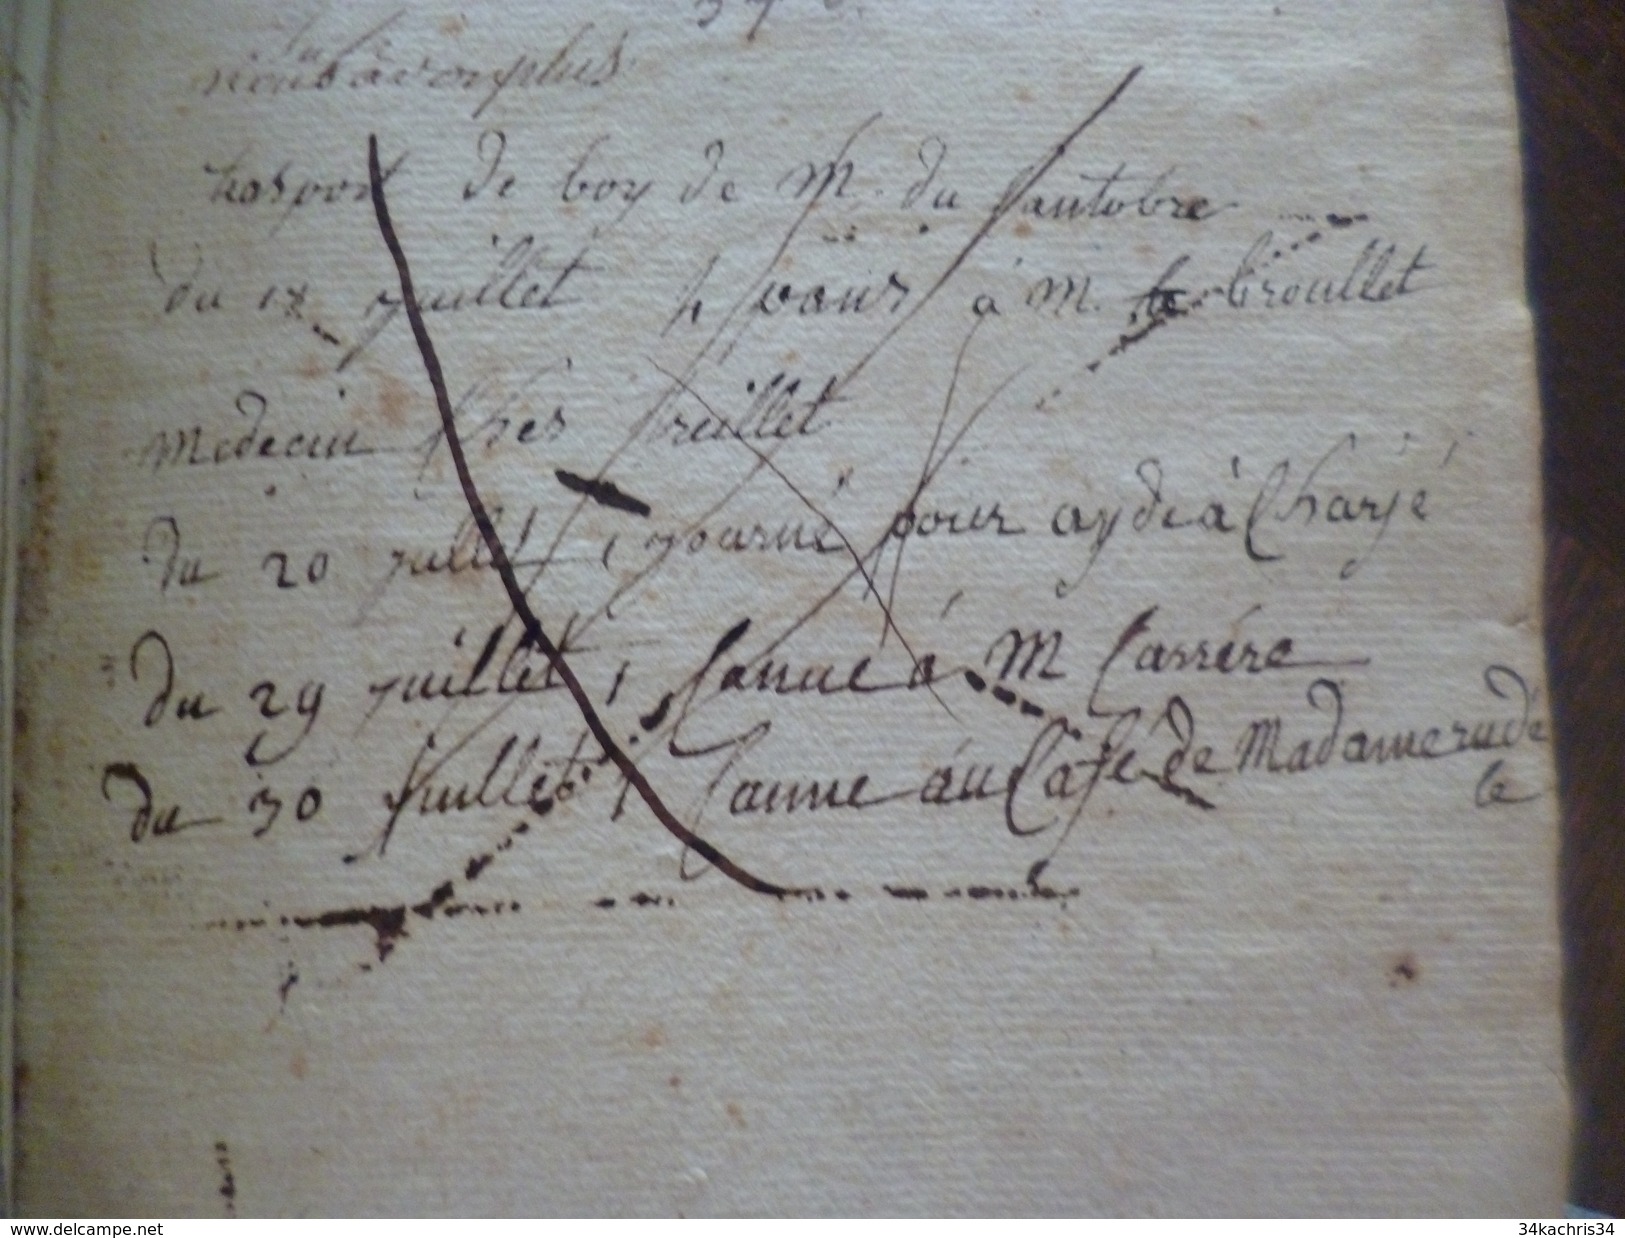 du
nous avon plus
trasport de boy de M. du Cantobre
du 18 juillet 4 pair à M. brouillet
Medecin Ches breillet
du 20 jullet 1 journé pour ayde à Charjé
du 29 juillet 1 Canne á M Carrére
du 30 juillet 1 Canne áu Café de Madame rude
le
www.delcampe.net
34kachris34